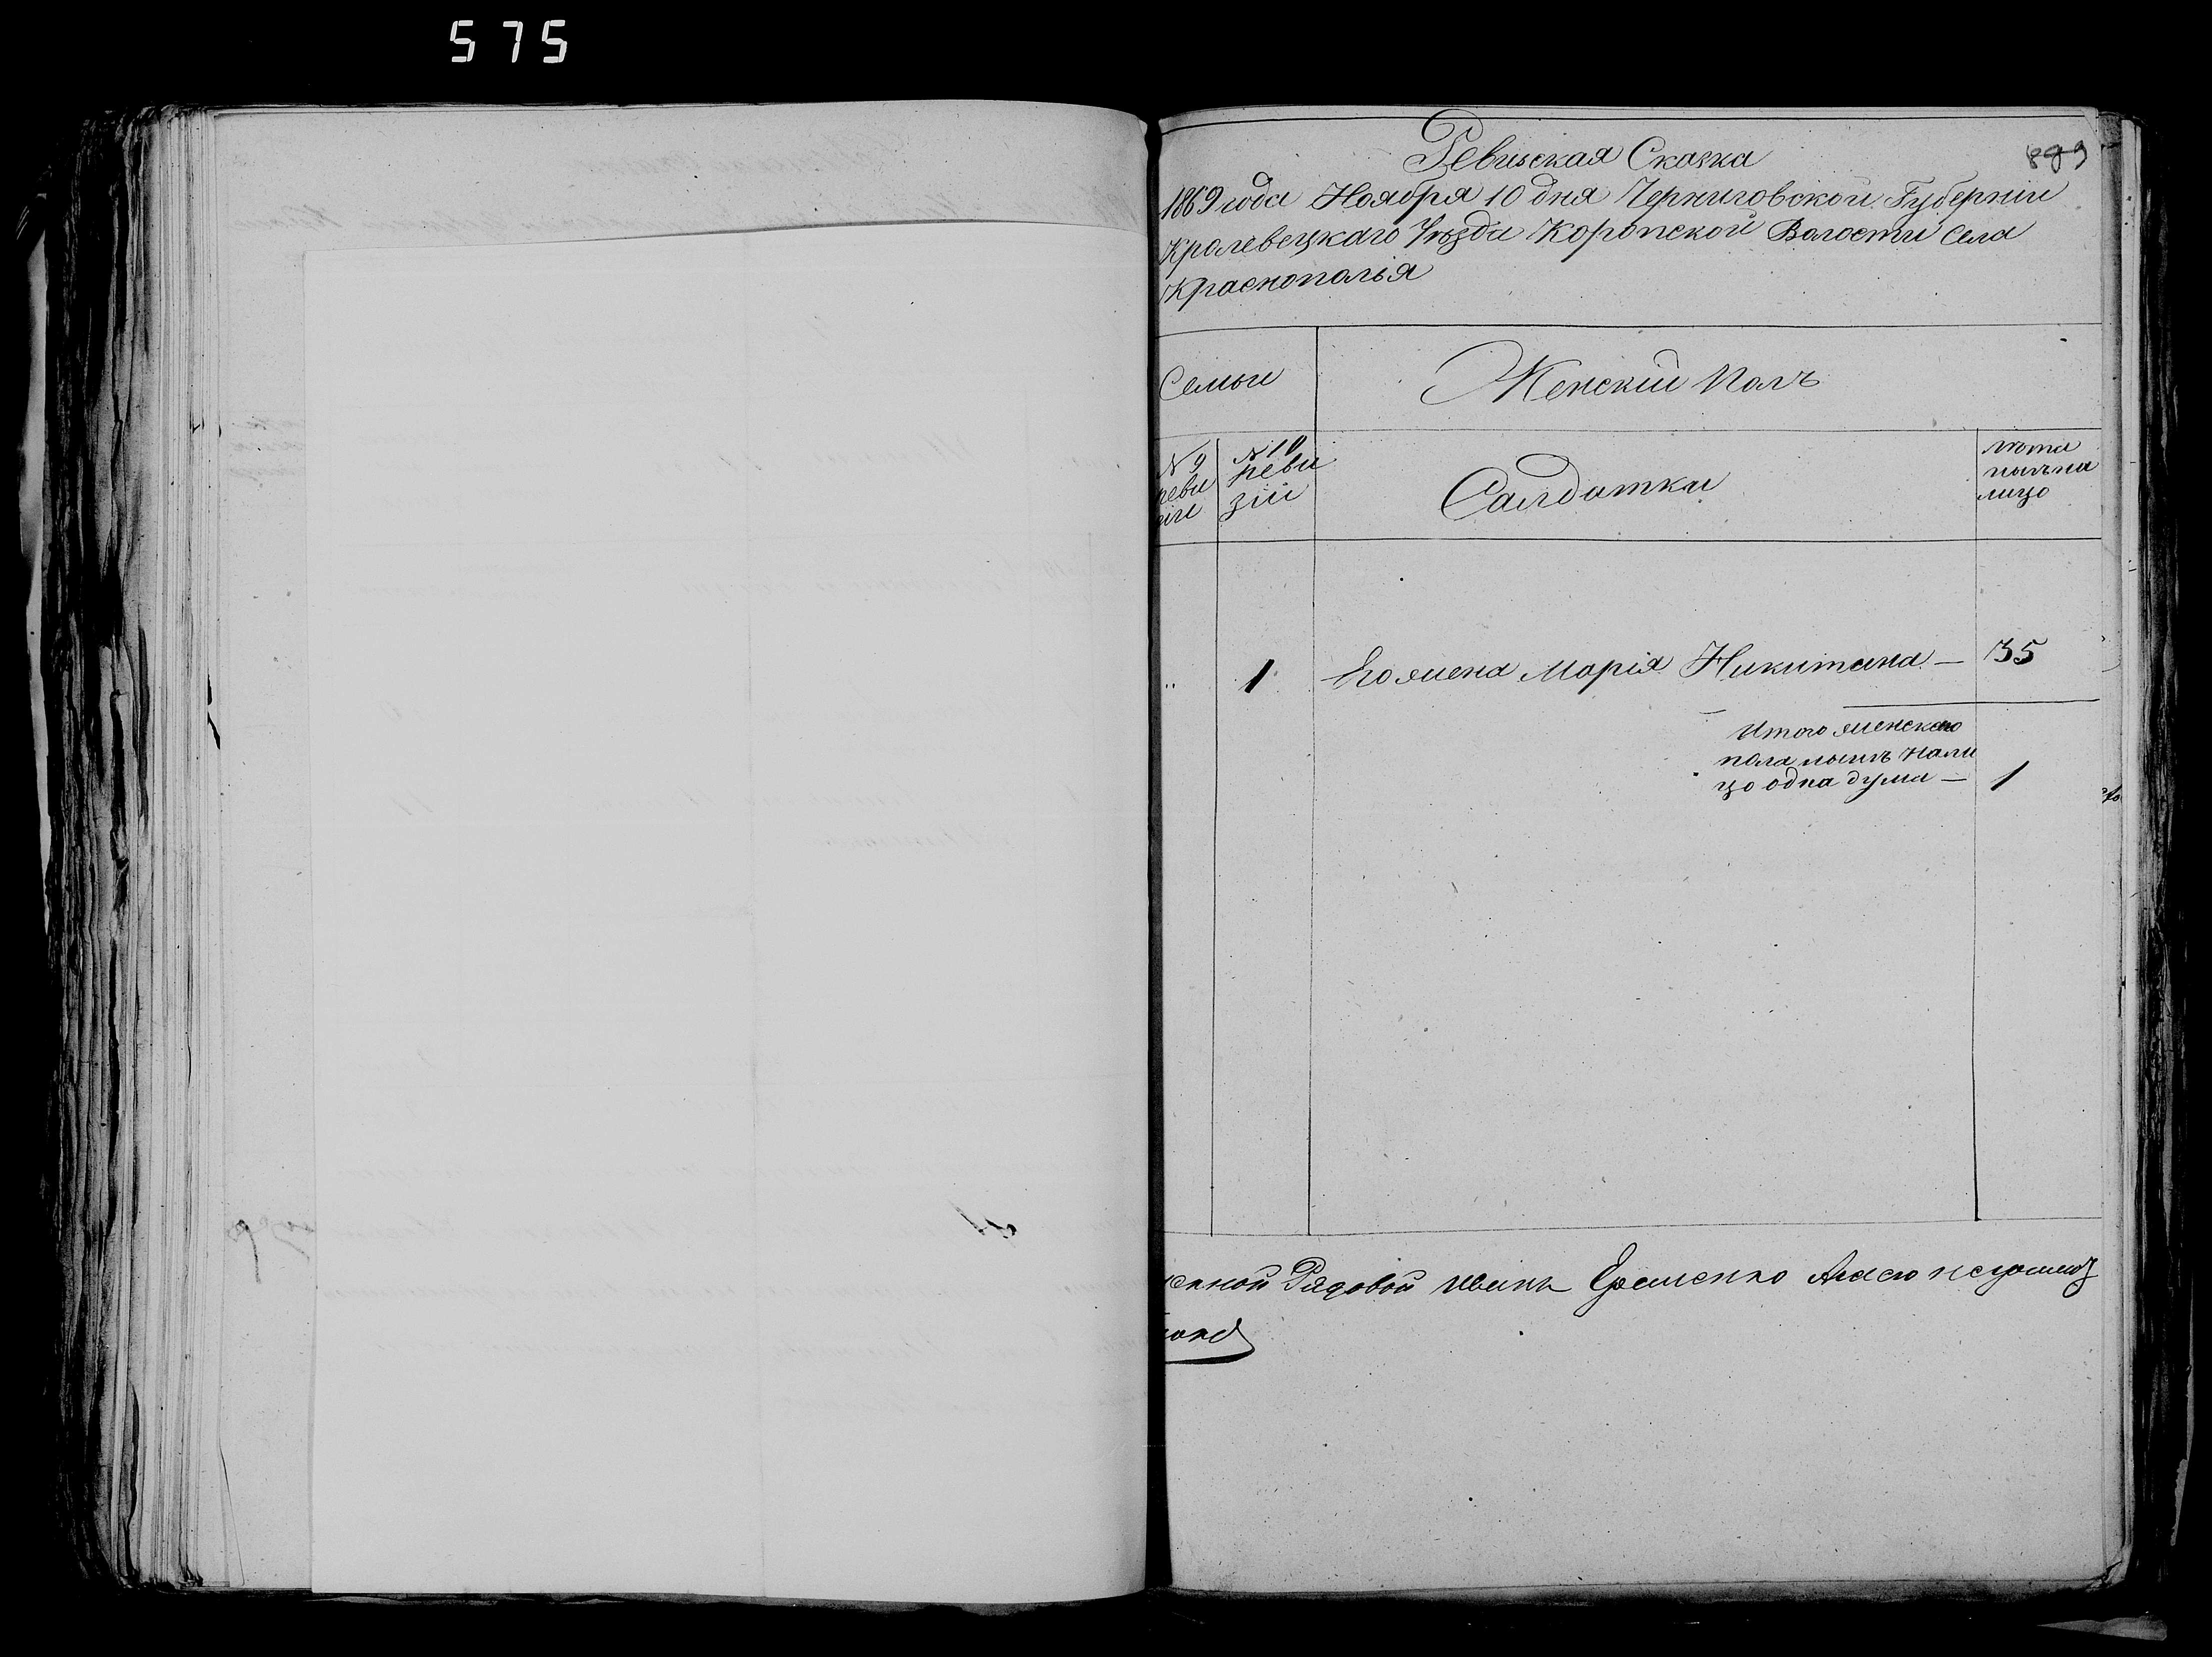 575
899
Ревизская Сказка
1869 года Ноября 10 дня Черниговской Губерніи
Кролевецкаго Уезда Коропской Волости Села
Краснополья
Семьи
Женскій Полъ
N 9 реви зіи
N 10 реви зіи
Салдатки
лета ныне на лицо
1 Его жена Марія Никитина — 35
Итого женскаго
пола ныне нали
цо одна душа — 1
Рядовой Иванъ Еременко